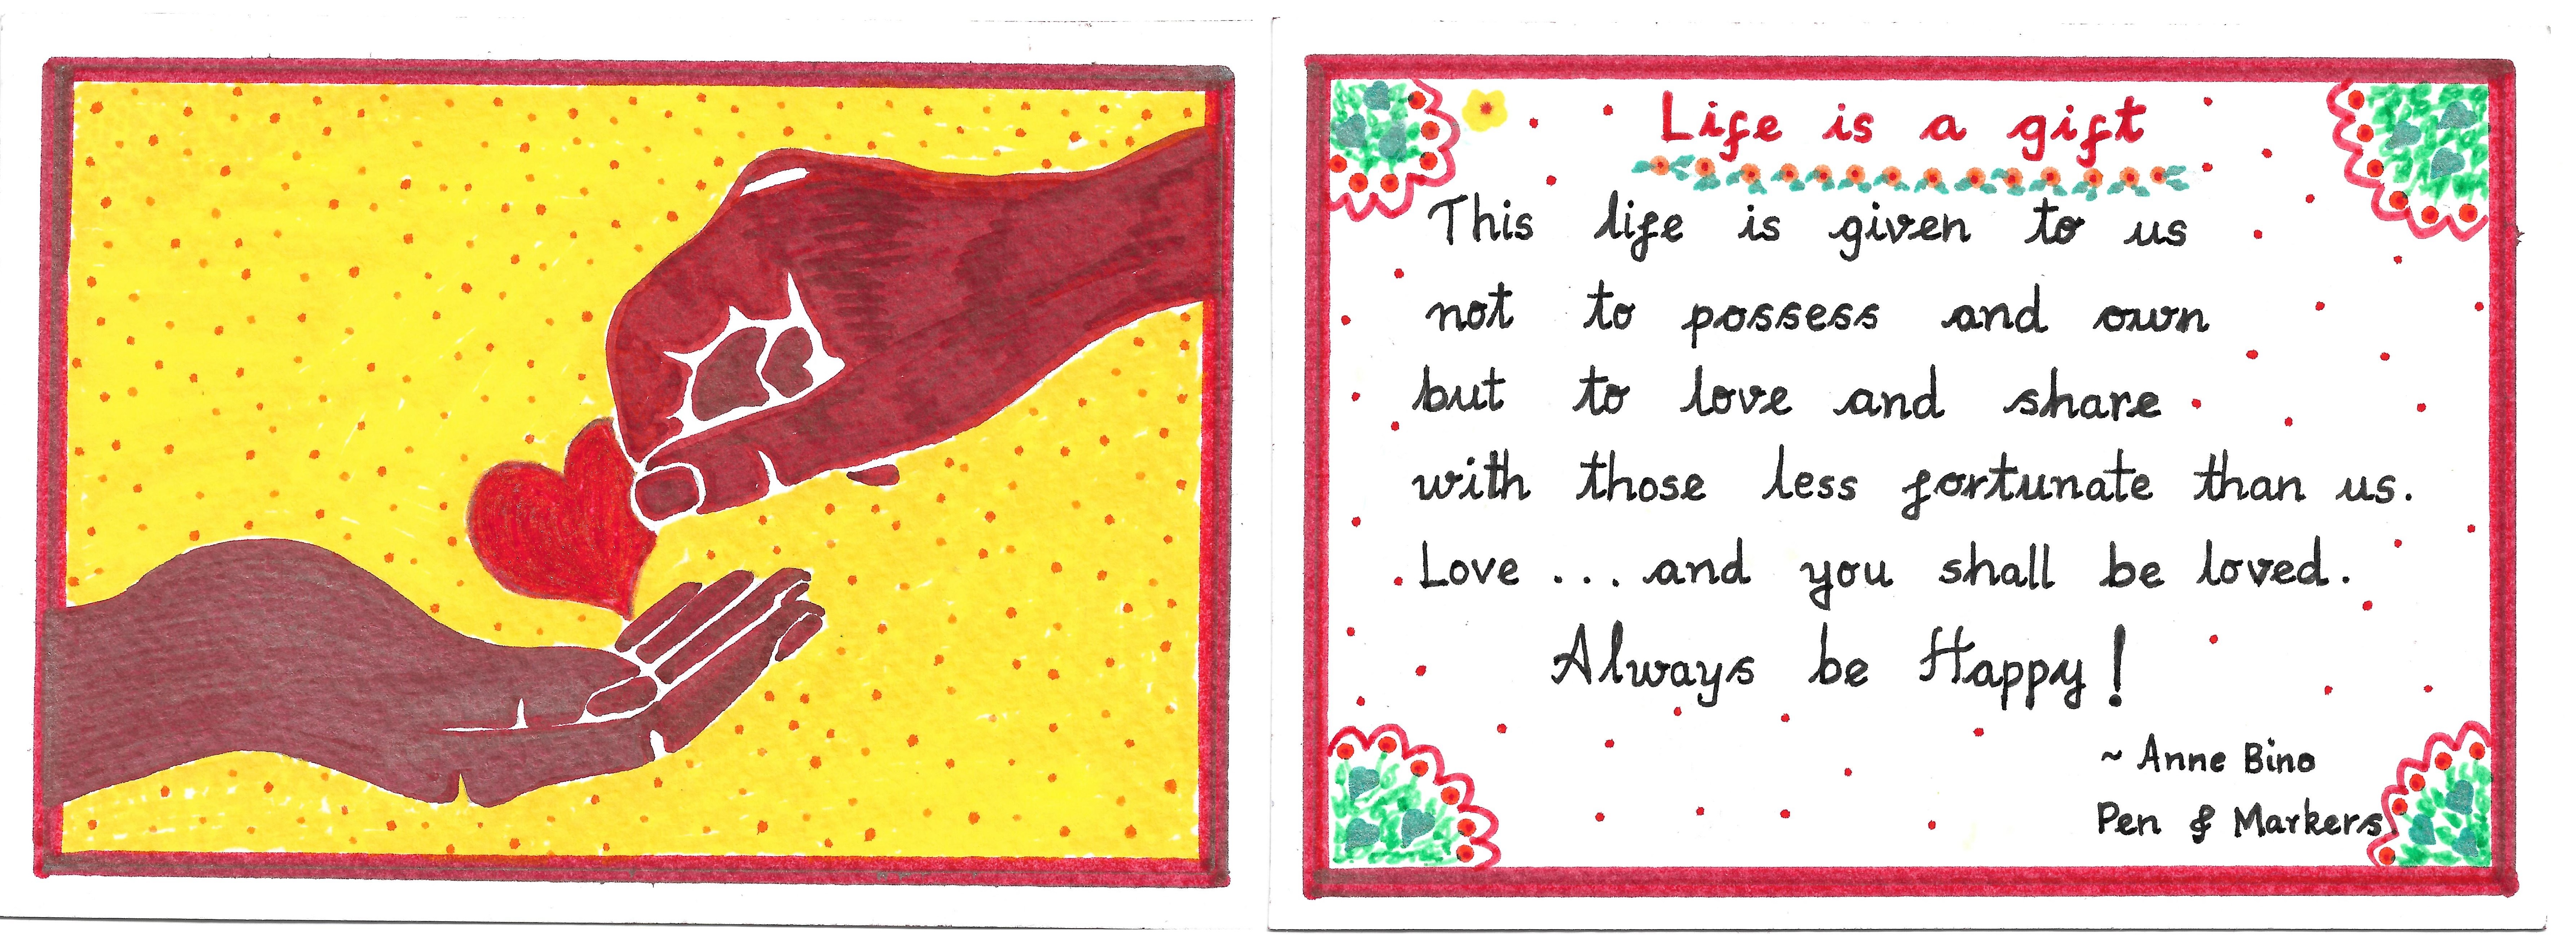 Life is a gift
This life is given to us
not to possess and own
but to love and share
with those less fortunate than us.
Love ... and you shall be loved.
Always be Happy!
~ Anne Bino
Pen & Markers